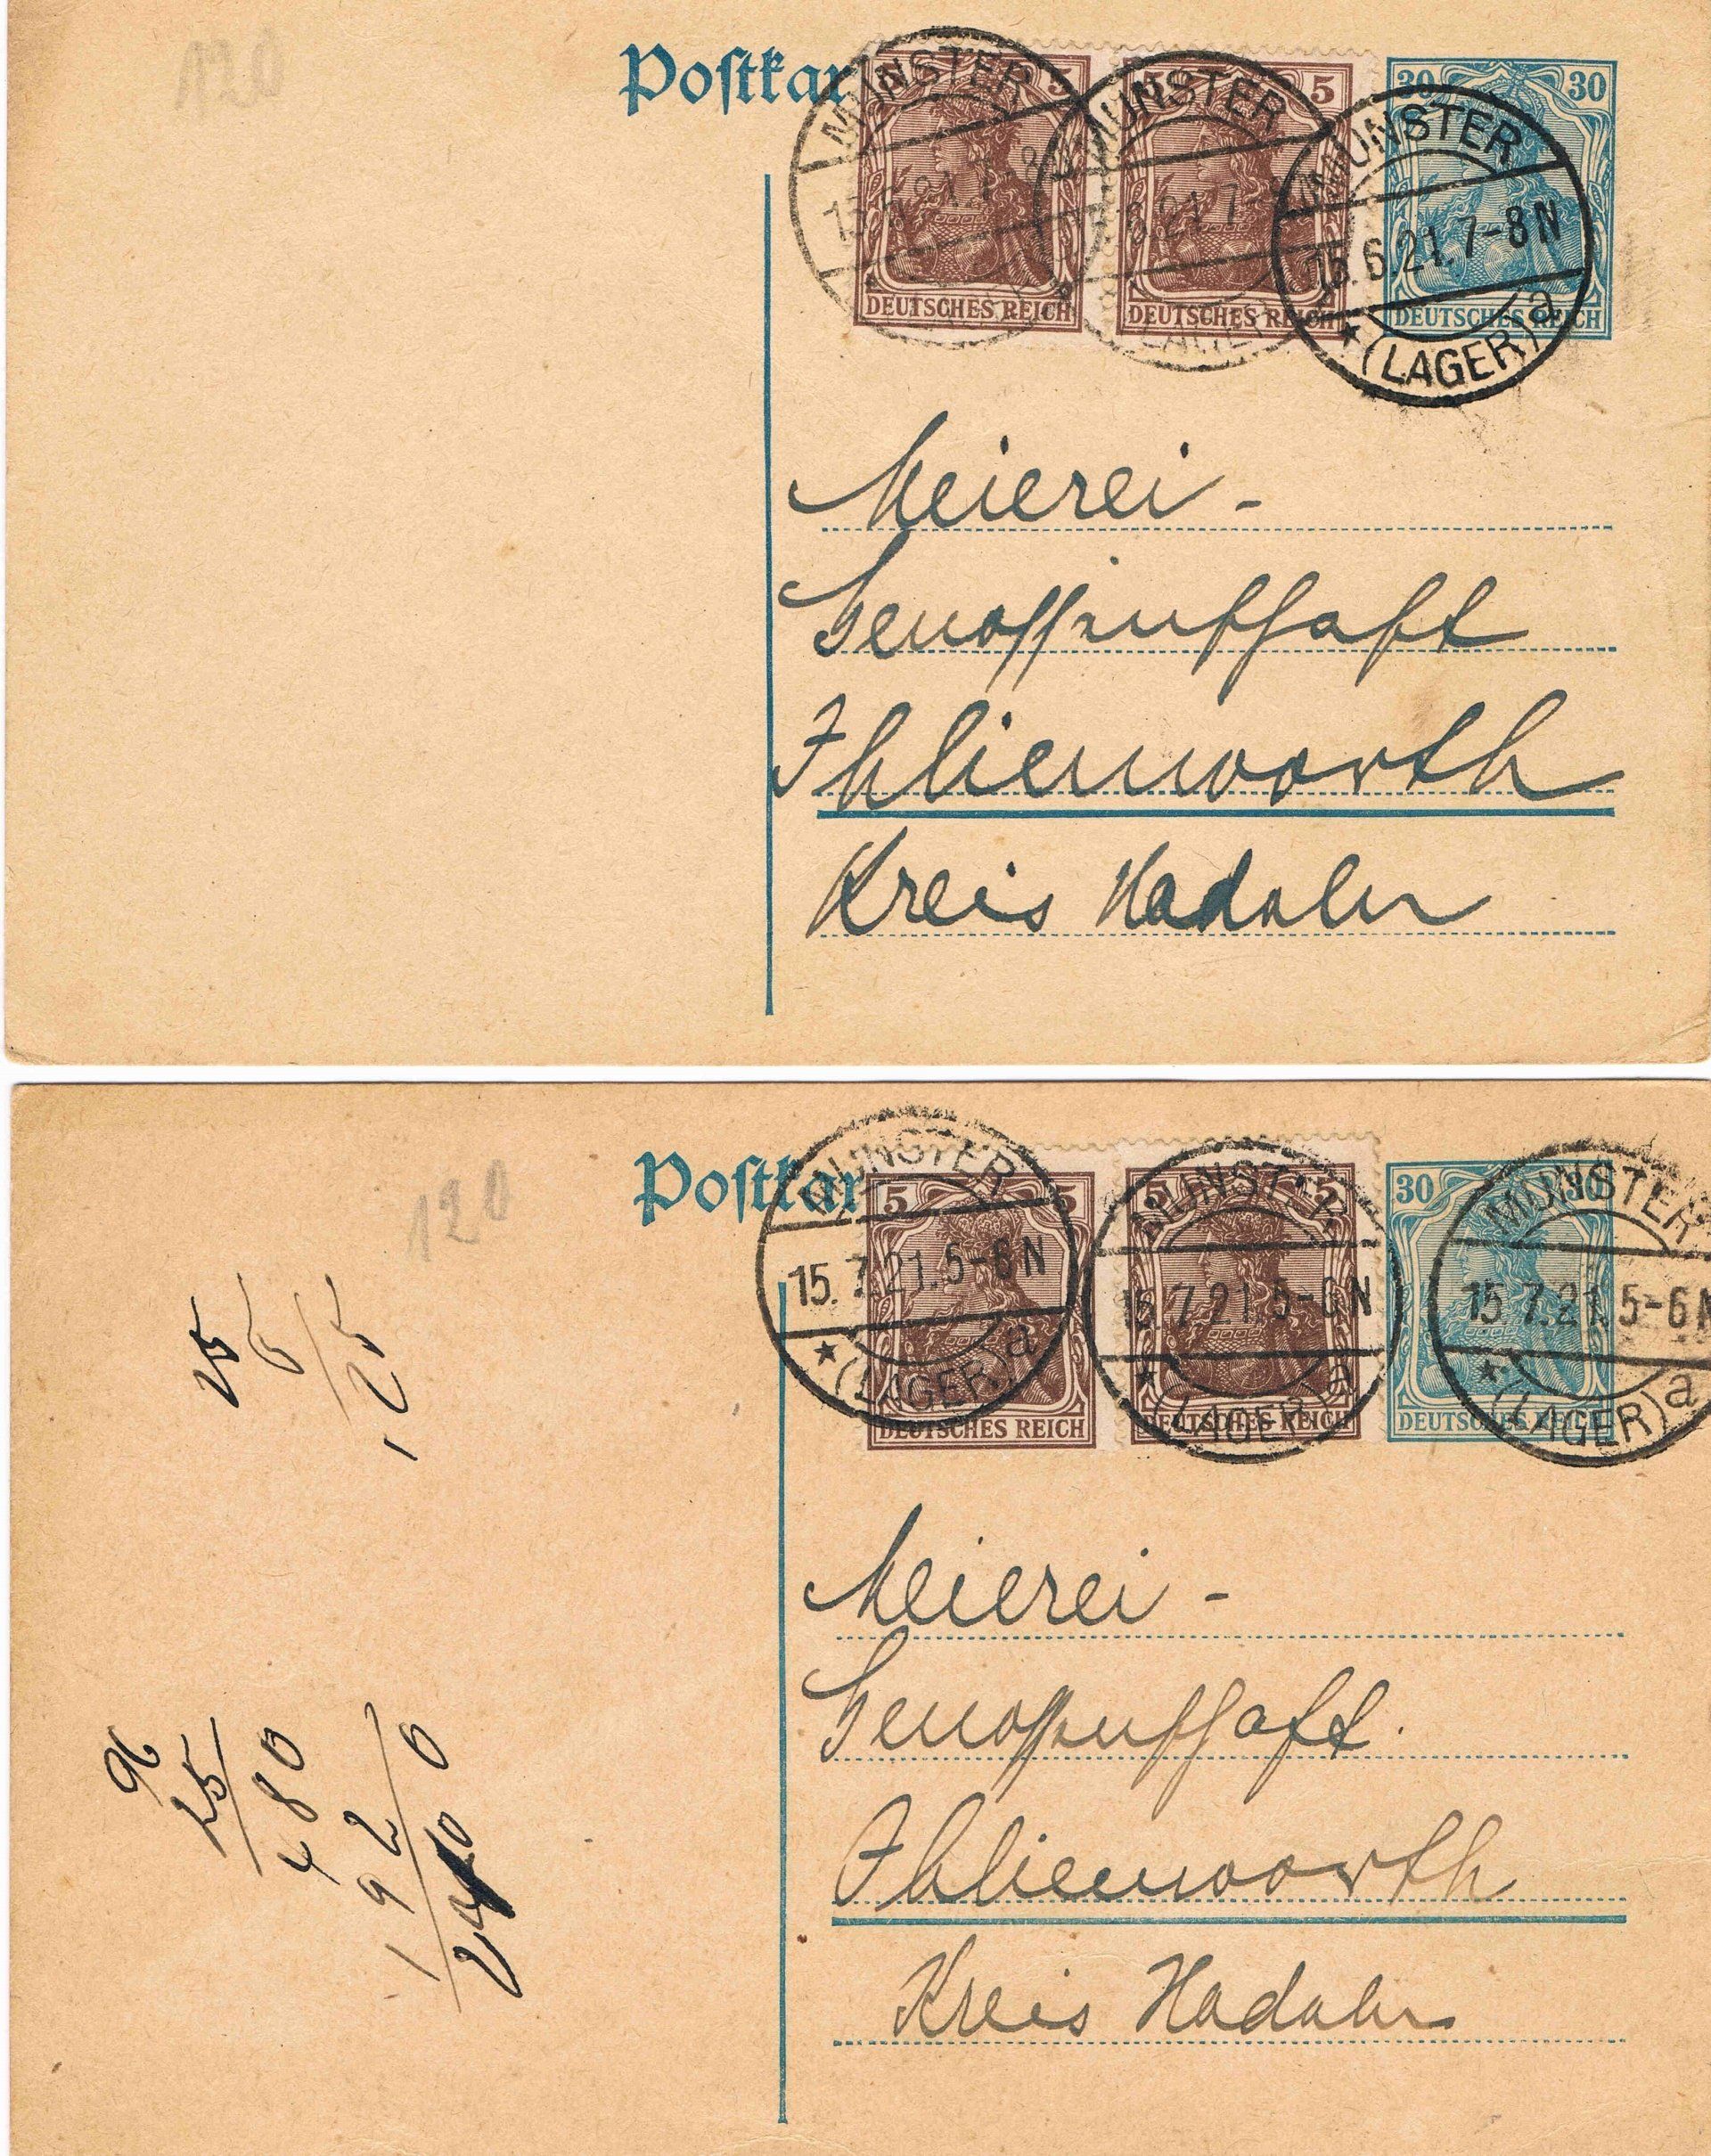 120
Postkar
5 5
5 5
30 30
MÜNSTER
MÜNSTER
MÜNSTER
6.21.7-8
15.6.21.7-8N
DEUTSCHES REICH
DEUTSCHES REICH
DEUTSCHES REICH
(LAGER)
* (LAGER) a
Meierei-
Genossenschaft
Ihlienworth
Kreis Hadaln
120
Postkar
5 5
5 5
30 30
MÜNSTER
MÜNSTER
MÜNSTER
15.7.21.5-6N
15.7.21.5-6N
15.7.21.5-6N
* (LAGER) a
* (LAGER) a
* (LAGER) a
DEUTSCHES REICH
DEUTSCHES REICH
DEUTSCHES REICH
25
5
125
96
25
480
192 0
2400
Meierei-
Genossenschaft.
Ihlienworth
Kreis Hadaln